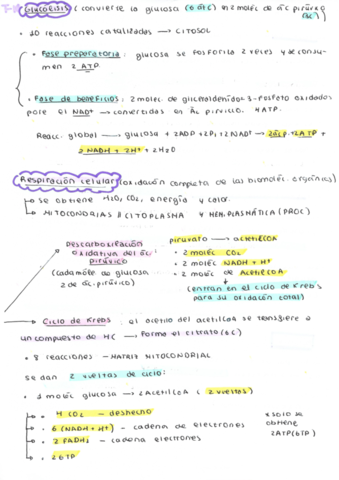 GLUCOLISIS (convierte la glucosa (6 át C) en 2 moléc de ác pirúvico
(3C))
• 10 reacciones catalizadas → CITOSOL
• Fase preparatoria: glucosa se fosforila 2 veces y se consu-
men 2 ATP
• Fase de beneficios: 2 molec. de gliceraldehído 3-fosfato oxidados
por el NAD+ → convertidas en Ác pirúvico. 4ATP.
Reacc. global → glucosa + 2ADP + 2Pi + 2NAD+ → 2ác p. + 2ATP +
2 NADH + 2H+ + 2H2O
Respiración celular (oxidación completa de las bioméléc. orgánicas)
↳ se obtiene H2O, CO2, energía y calor.
↳ MITOCONDRIAS o CITOPLASMA y MEM. PLASMÁTICA (PROC)
Descarboxilación
oxidativa del ác.
pirúvico
(cada moléc de glucosa
2 de ác. pirúvico)
piruvato → acetilCOA
• 2 moléc CO2
• 2 moléc NADH + H+
• 2 moléc de AcetilCOA
(entran en el ciclo de Krebs
para su oxidación total)
→ Ciclo de Krebs: el acetilo del acetilCoA se transfiere a
un compuesto de 4C → forma el citrato (6C)
• 8 reacciones - MATRIZ MITOCONDRIAL
se dan 2 vueltas de ciclo:
• 1 moléc glucosa → 2AcetilCoA (2 vueltas)
↳ • 4 CO2 - deshecho
↳ • 6 (NADH + H+) - cadena de electrones
↳ • 2 FADH2 - cadena electrones
↳ • 2 GTP
* solo se
obtiene
2ATP (GTP)